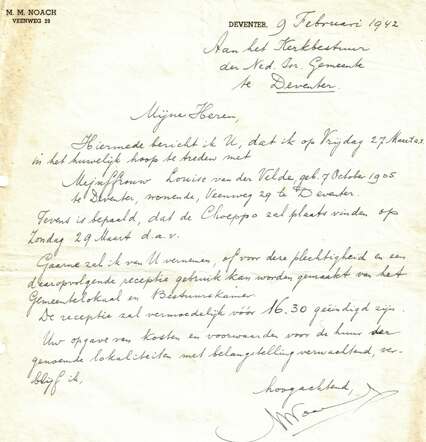 M. M. NOACH
VEENWEG 29
DEVENTER, 9 Februari 1942
Aan het Kerkbestuur
der Ned. Isr. Gemeente
te Deventer.
Mijne Heren,
Hiermede bericht ik U, dat ik op Vrijdag 27 Maart a.s.
in het huwelijk hoop te treden met
Mejuffrouw Louise van der Velde, geb. 7 October 1905
te Deventer, wonende, Veenweg 29 te Deventer.
Tevens is bepaald, dat de Choeppo zal plaats vinden op
Zondag 29 Maart d.a.v.
Gaarne zal ik van U vernemen, of voor deze plechtigheid en een
daaropvolgende receptie gebruik kan worden gemaakt van het
Gemeentelokaal en Bestuurskamer.
De receptie zal vermoedelijk vóór 16.30 geëindigd zijn.
Uw opgave van kosten en voorwaarden voor de huur der
genoemde lokaliteiten met belangstelling verwachtend, ver-
blijf ik,
hoogachtend,